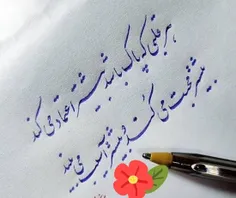 هر قلبی که پاک باشد بیشتر اعتماد می کند
بیشتر محبت می کند و بیشتر آسیب می بیند